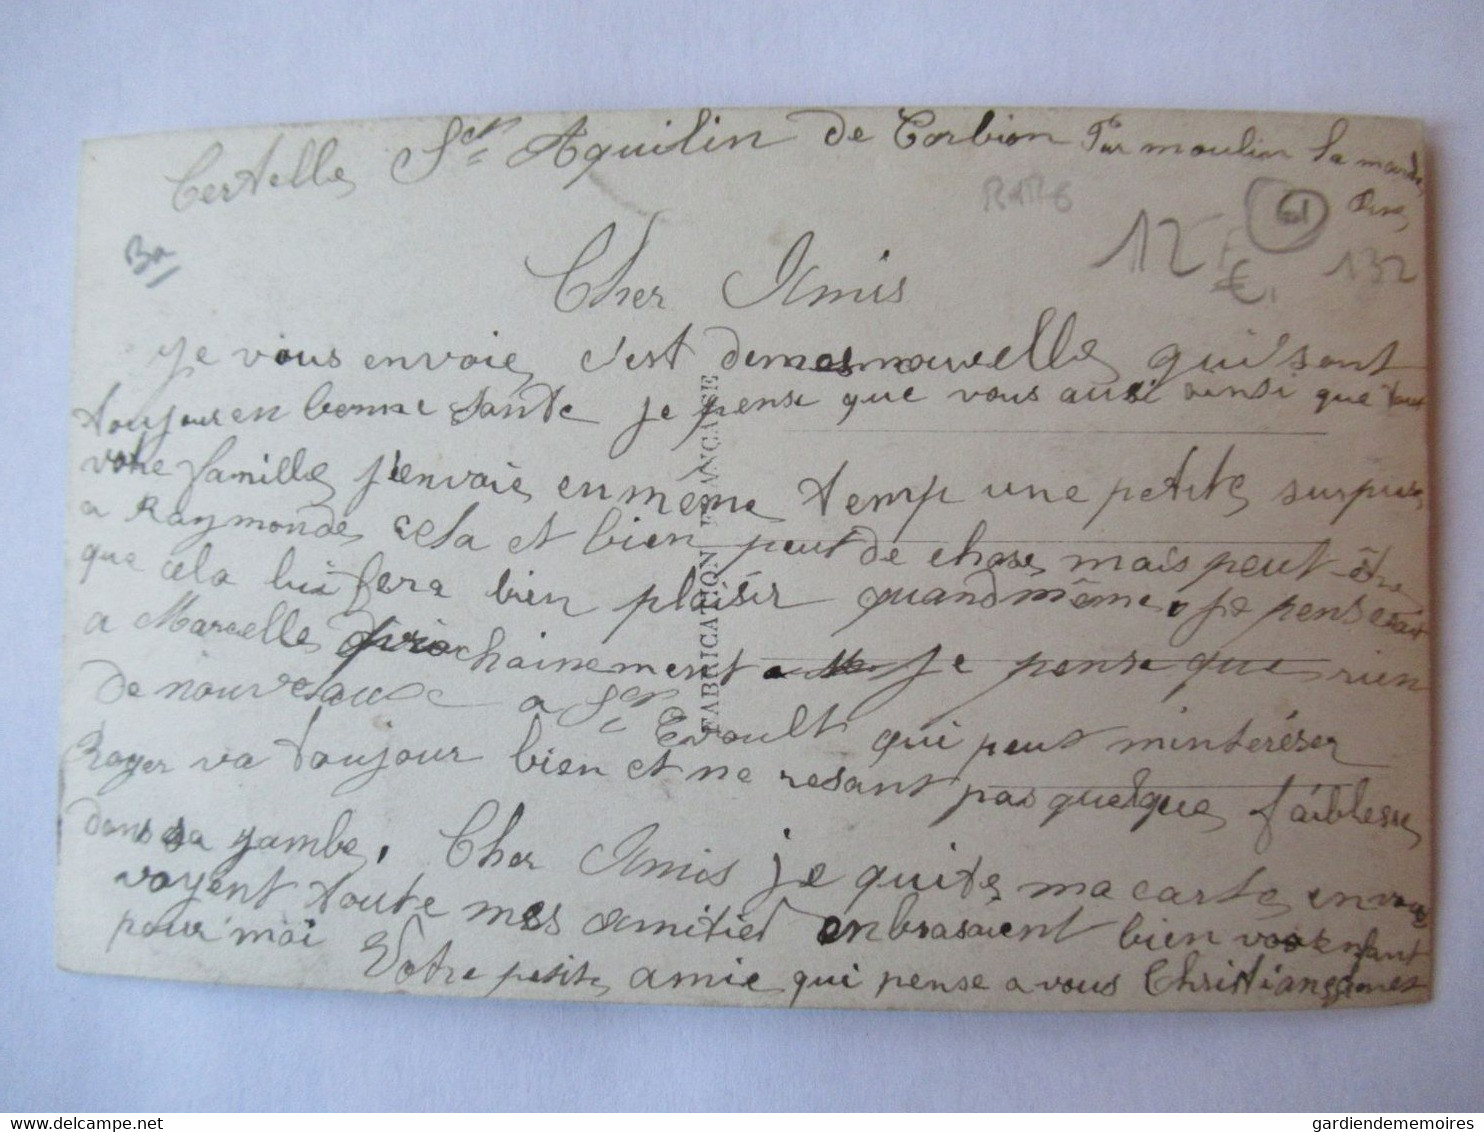 Certelle St Aquilin de Corbion Par moulin la marche
Orne
RARE
12 €
132
Cher Amis
Je vous envoie c'est de mes nouvelle qui sont
toujour en bonne sante je pense que vous ausi ainsi que tout
votre famille j'envoie en même temp une petite surprise
a Raymonde cela et bien peut de chose mais peut-être
que cela lui fera bien plaisir quand même, je penserai
a Marcelle prochainement je pense que rien
de nouveaux a St Evoult qui peut m'intéréser
Roger va toujour bien et ne resant pas quelque faiblesse
dans sa jambe. Cher Amis je quite ma carte en vous
voyent toute mes amitiet enbrasaient bien vos enfant
pour moi Votre petite amie qui pense a vous Christiane
FABRICATION FRANÇAISE
delcampe.net
gardiendememoires